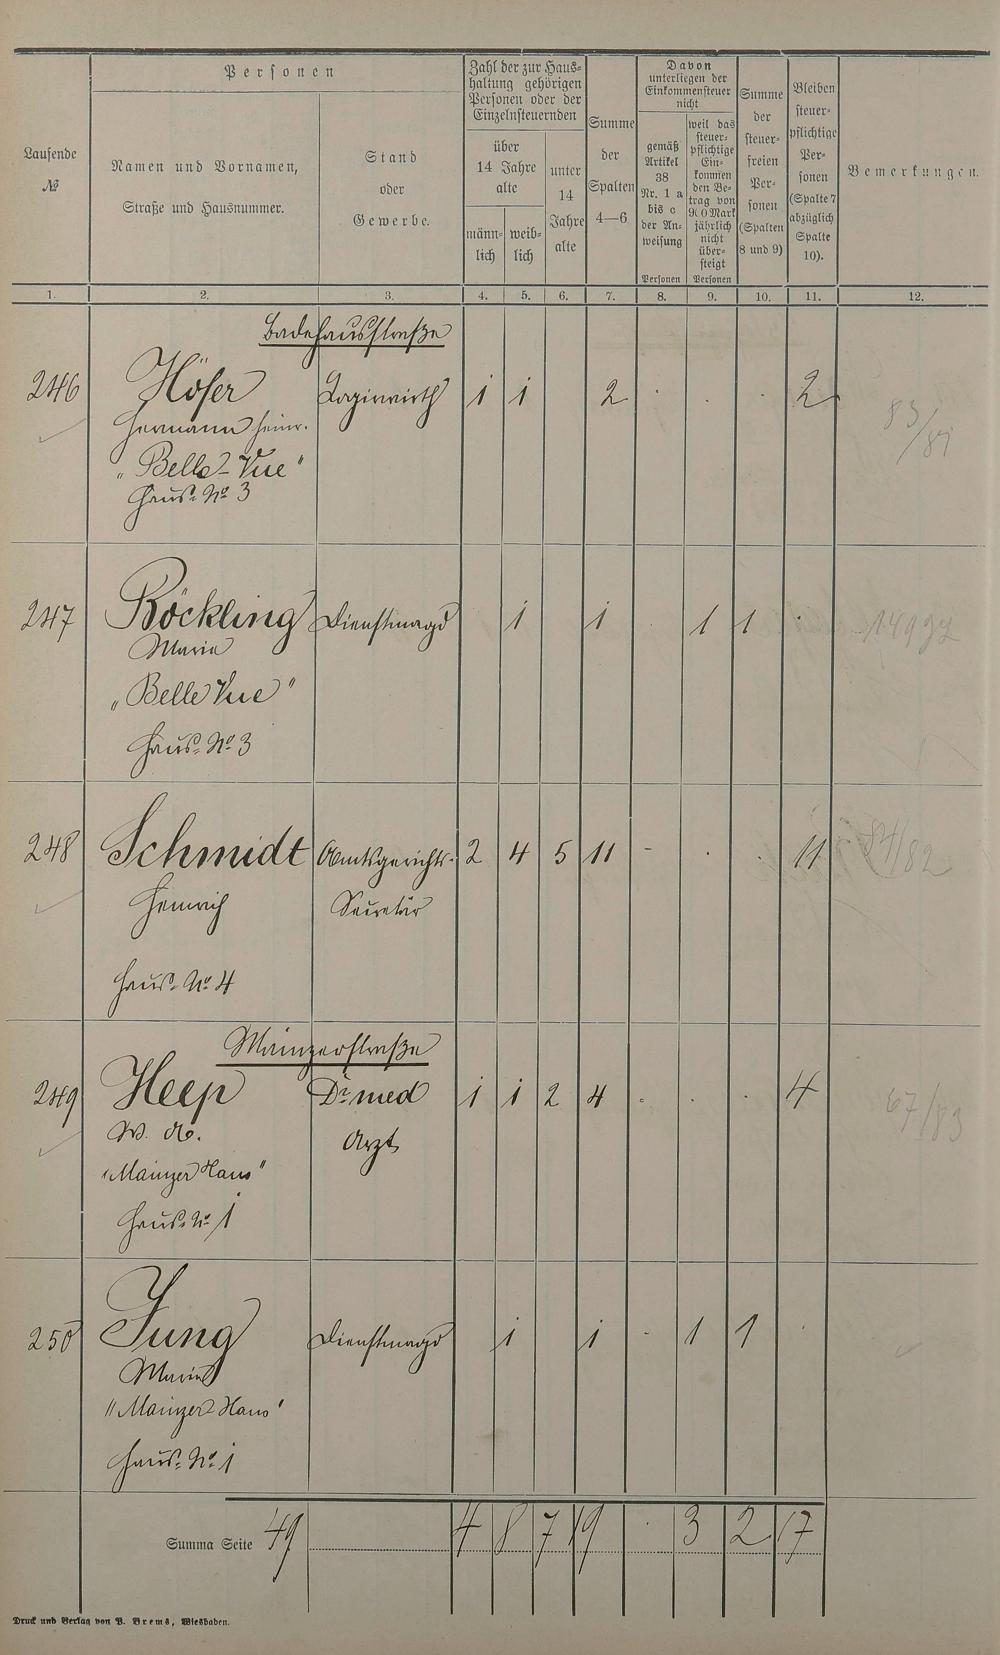 Personen
Laufende
№
Namen und Vornamen,
Straße und Hausnummer.
Stand
oder
Gewerbe.
Zahl der zur Haus-
haltung gehörigen
Personen oder der
Einzelnsteuernden
über
14 Jahre
alte
männ-
lich
weib-
lich
unter
14
Jahre
alte
Summe
der
Spalten
4—6
Davon
unterliegen der
Einkommensteuer
nicht
gemäß
Artikel
38
Nr. 1 a
bis c
der An-
weisung
Personen
weil das
steuer-
pflichtige
Ein-
kommen
den Be-
trag von
900 Mark
jährlich
nicht
über-
steigt
Personen
Summe
der
steuer-
freien
Per-
sonen
(Spalten
8 und 9)
Bleiben
steuer-
pflichtige
Per-
sonen
(Spalte 7
abzüglich
Spalte
10).
Bemerkungen.
1. 2. 3. 4. 5. 6. 7. 8. 9. 10. 11. 12.
Badehausstraße
246 Höser Logirwirth 1 1 2 . . . 2
Hermann Heinr.
"Belle-Vue"
Haus-No 3
83/87
247 Röckling Dienstmagd 1 1 . 1 1 .
Marie
"Belle Vue"
Haus-No 3
248 Schmidt Amtsgerichts- 2 4 5 11 - . . 11 84/82
Heinrich Secretär
Haus-No 4
Mainzerstraße
249 Heep Dr med 1 1 2 4 . . . 4 67/83
W. A. Arzt
"Mainzer Haus"
Haus-No 1
250 Jung Dienstmagd 1 1 - 1 1 .
Marie
"Mainzer-Haus"
Haus-No 1
Summa Seite 49 4 8 7 19 . 3 2 17
Druck und Verlag von P. Brems, Wiesbaden.